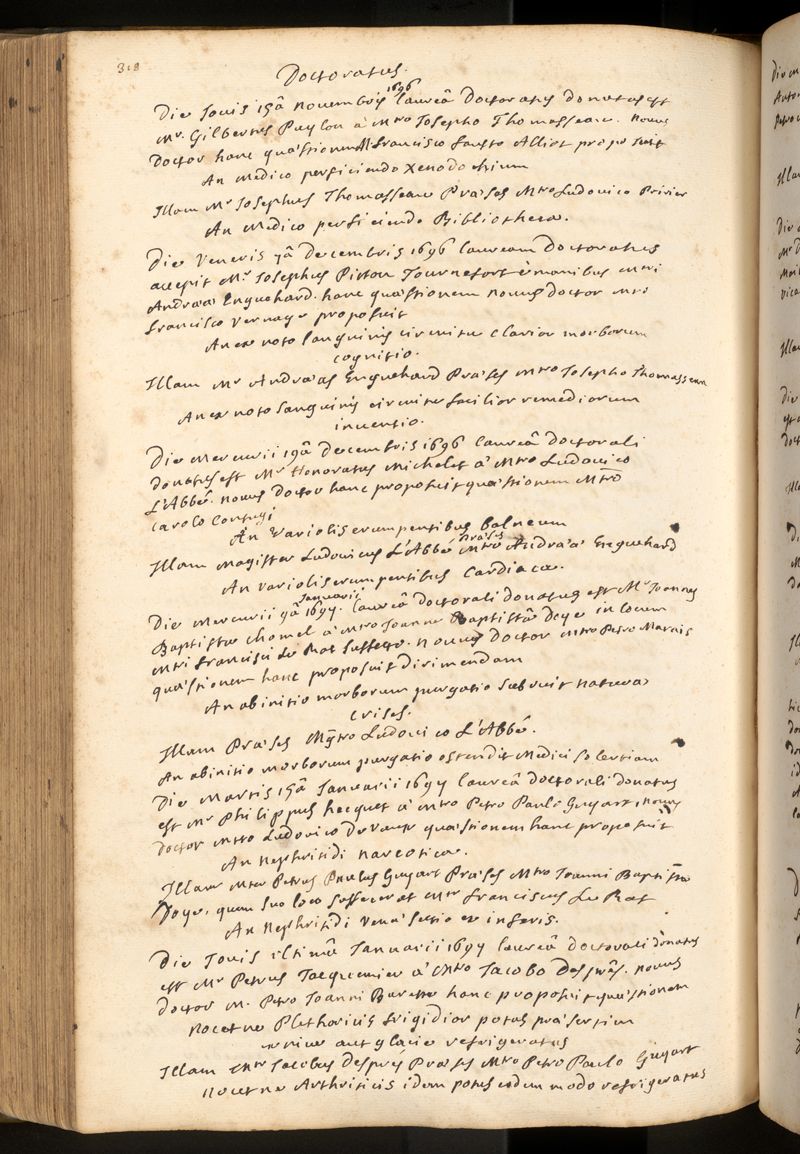 318
Doctoratus.
Die Jovis 15â novembris 1696 laureâ Doctoratus donatus est
Mr. Gilbertus Puylon a Mtro Josepho Thomasseau. novus
Doctor hanc quæstionem Mro francisco fausto Alliot proposuit
An Medico perficiendo xenodochium
Illam Mr Josephus Thomasseau Præses Mtro Ludovico Poirier
An Medico perficiendo Bibliotheca.
Die Veneris 7â Decembris 1696 lauream Doctoratus
accepit Mr Josephus Pitton Tournefort è manibus mtri
Andreæ Enguehard. hanc quæstionem novus doctor mtro
francisco vernage proposuit
An ex noto sanguinis circuitu clarior morborum
cognitio.
Illam Mr Andræas Enguehard Præses mtro Josepho Thomasseau
An ex noto sanguinis circuitu facilior remediorum
inventio.
Die Mercurii 19â Decembris 1696 laureâ doctorali
donatus est Mr Honoratus Michelet à Mtro Ludovico
L'Abbé. novus Doctor hanc proposuit quæstionem Mtro
Carolo Contugi
An Variolis erumpentibus balneum
Illam magister Ludovicus L'Abbé Præses mtro Andreæ Enguehard
An variolis erumpentibus Cardiaca.
Die Mercurii 9â Januarii 1697. laureâ doctorali donatus est Mr Joannes
Baptista Chomel a mtro Joanne Baptistâ Doye in locum
mtri francisci Le Rat suffecto. novus Doctor mtro Petro Marais
quæstionem hanc proposuit dirimendam
An ab initio morborum purgatio subruit naturæ
crises.
Illam Præses Mtro Ludovico L'Abbé.
An ab initio morborum purgatio ostendit Medici solertiam
Die Martis 15â Januarii 1697 laureâ doctorali donatus
est Mr Philippus hecquet a mtro Petro Paulo Guyart, novus
Doctor mtro Ludovico De vaux quæstionem hanc proposuit
An Nephritidi narcotica.
Illam Mter Petrus Paulus Guyart Præses Mtro Joanni Baptistæ
Doye, quem suo loco suffecerat mter franciscus Le Rat
An Nephritidi venæ sectio ex inferis.
Die Jovis ultimâ Januarii 1697 laureâ doctorali donatus
est Mr Petrus Jacquemier a mtro Jacobo Desprès. novus
Doctor M. Petro Joanni Burette hanc proposuit quæstionem
nocet ne Plethoricis frigidior potus præsertim
nive aut glacie refrigeratus
Illam mter Jacobus Desprès Præses Mtro Petro Paulo Guyart
nocet ne Arthriticis idem potus eodem modo refrigeratus